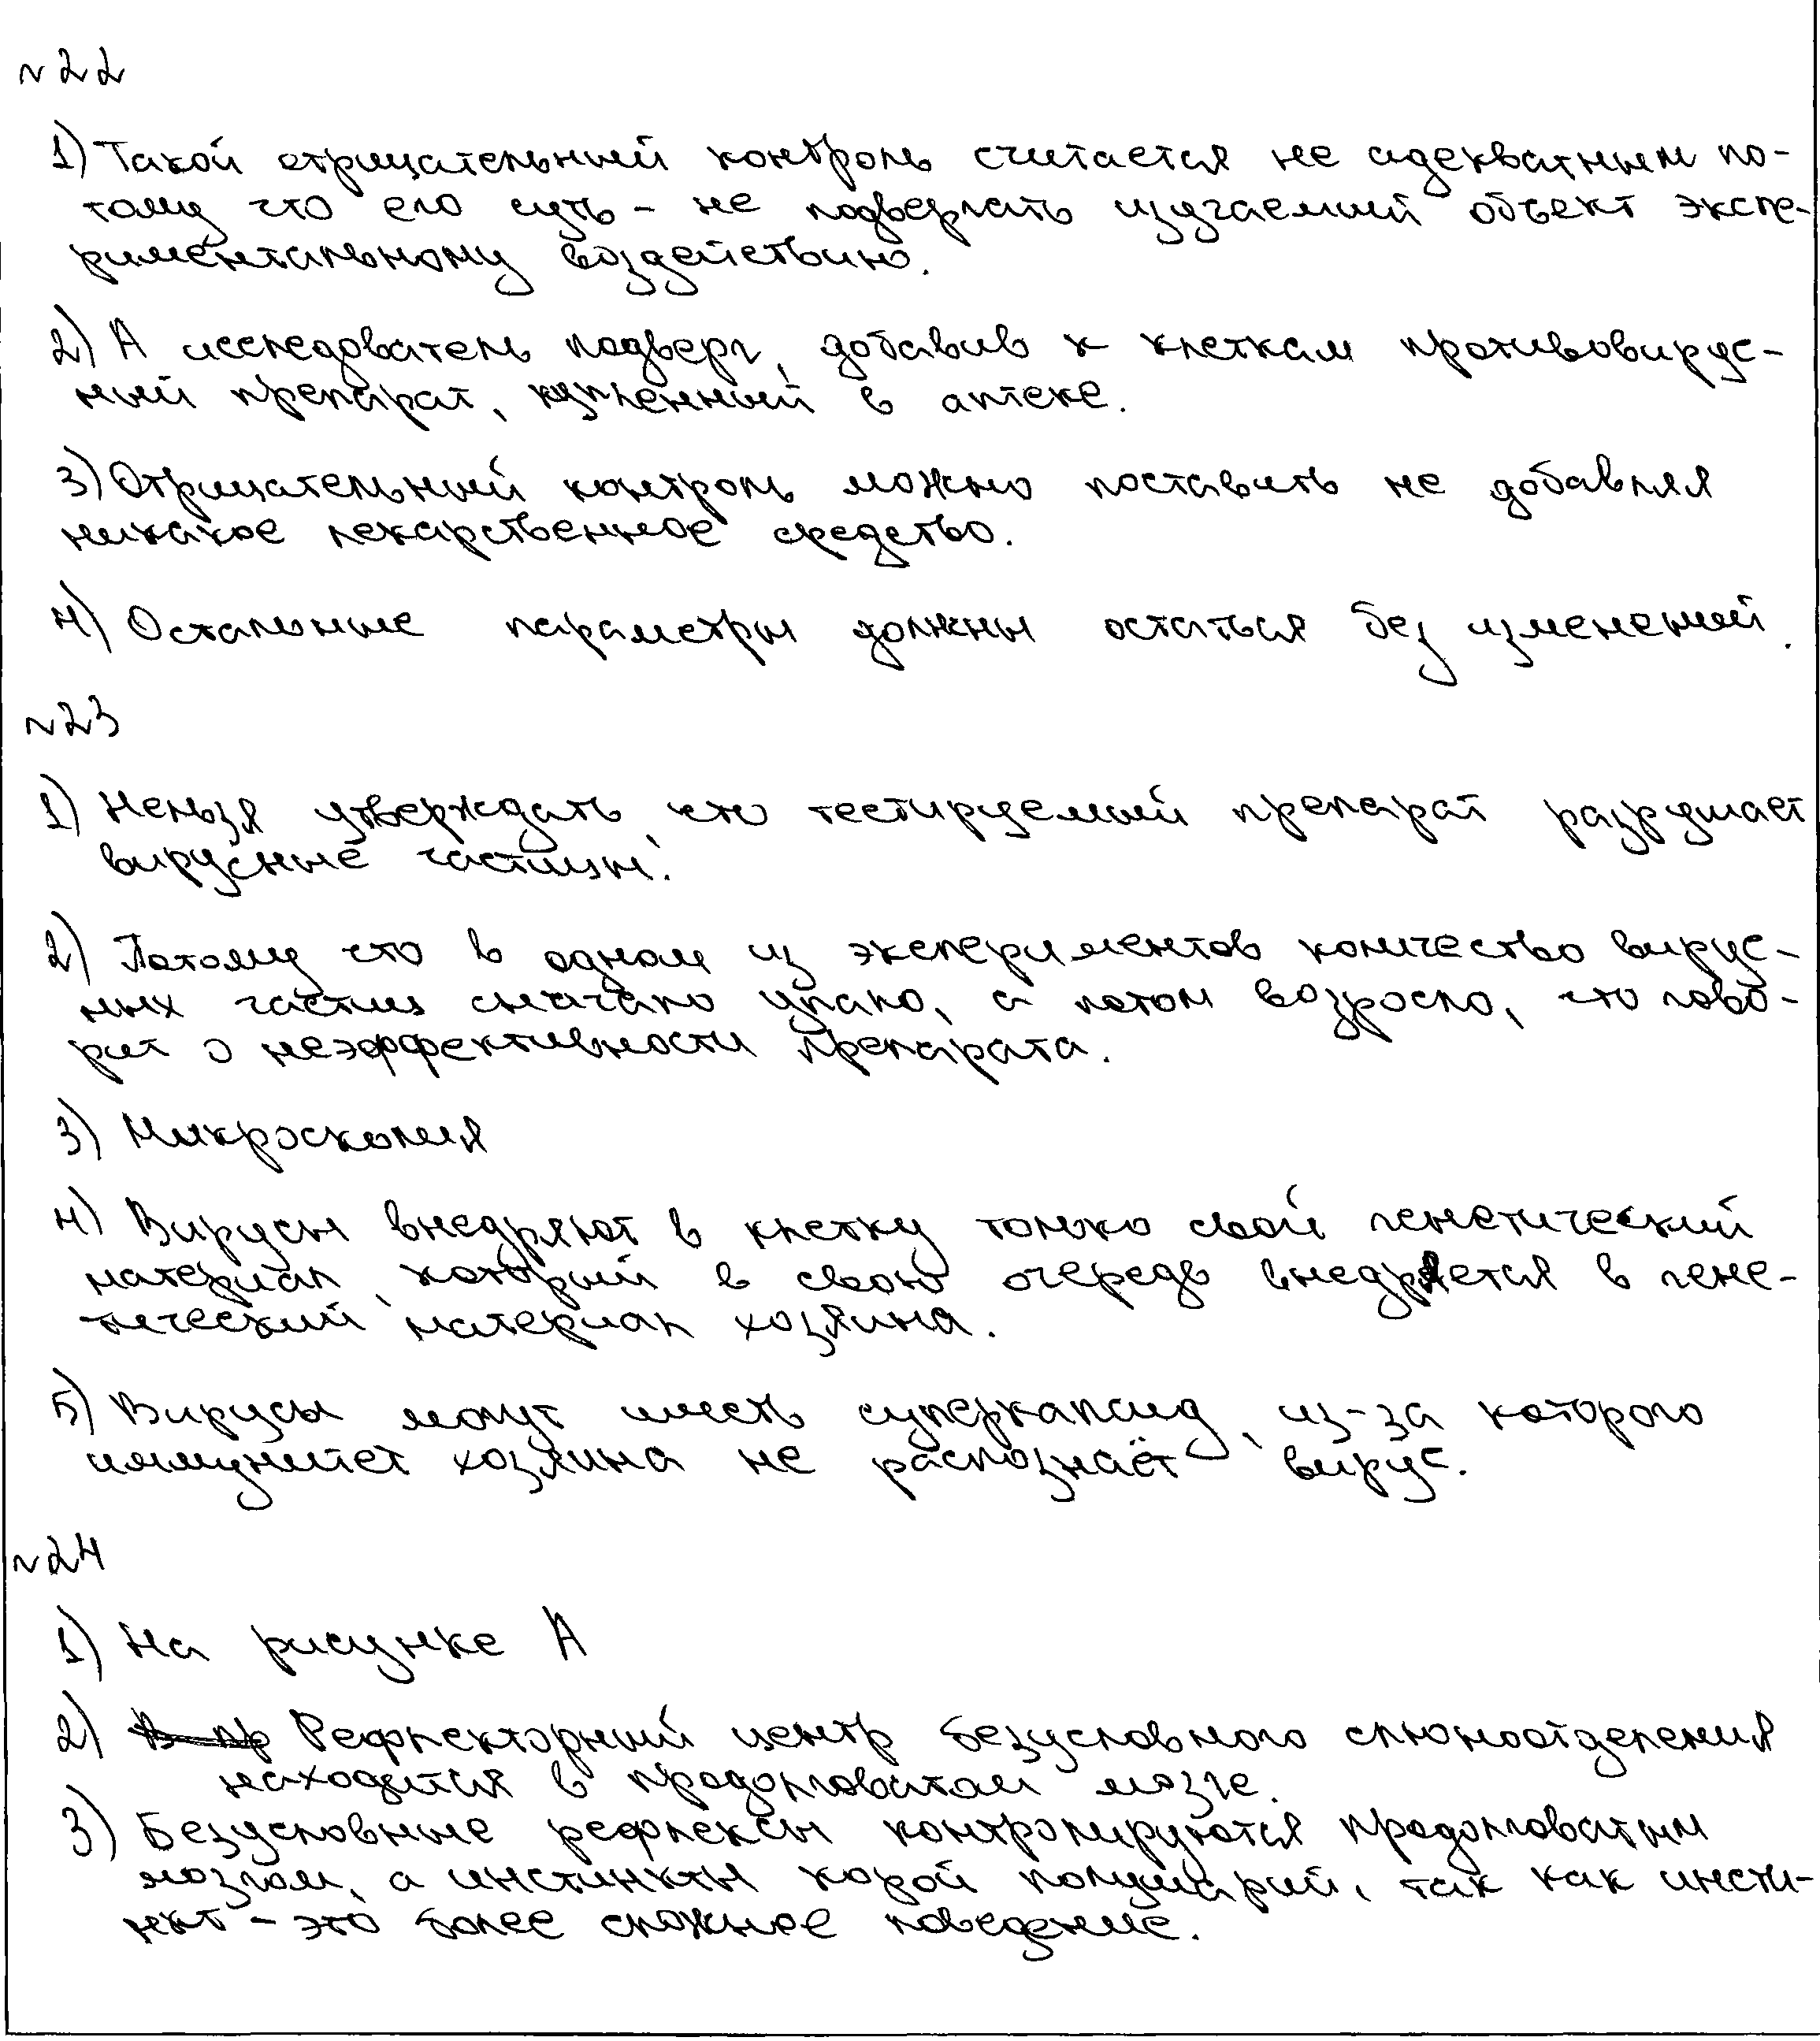 №22
1) Такой отрицательный контроль считается не адекватным по-
тому что его суть - не подвергать изучаемый объект экспе-
риментальному воздействию.
2) А исследователь подверг, добавив к клеткам противовирус-
ный препарат, купленный в аптеке.
3) Отрицательный контроль можно поставить не добавляя
никакое лекарственное средство.
4) Остальные параметры должны остаться без изменений.
№23
1) Нельзя утверждать, что тестируемый препарат разрушает
вирусные частицы.
2) Потому что в одном из экспериментов количество вирус-
ных частиц сначало упало, а потом возросло, что гово-
рит о неэффективности препарата.
3) Микроскопия
4) Вирусы внедряют в клетку только свой генетический
материал, который в свою очередь внедряется в гене-
тический материал хозяина.
5) Вирусы могут иметь суперкапсид, из-за которого
иммунитет хозяина не распознаёт вирус.
№24
1) На рисунке А
2) Рефлекторный центр безусловного слюноотделения
находится в продолговатом мозге.
3) Безусловные рефлексы контролируются продолговатым
мозгом, а инстинкты корой полушарий, так как инсти-
нкт - это более сложное поведение.